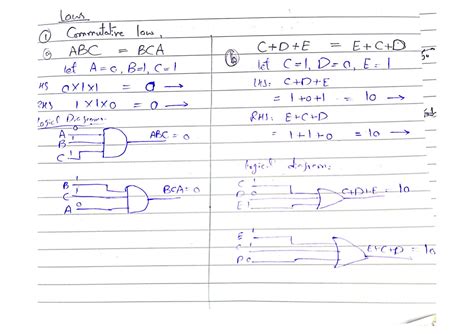 Laws
① Commutative law,
ⓐ ABC = BCA
let A=0, B=1, C=1
LHS 0×1×1 = 0 →
RHS 1×1×0 = 0 →
logical Diagram
A 0
B 1
C 1
ABC = 0
B 1
C 1
A 0
BCA = 0
ⓑ C+D+E = E+C+D
let C=1, D=0, E=1
LHS: C+D+E
= 1+0+1 = 10 →
RHS: E+C+D
= 1+1+0 = 10 →
logical diagram:
C 1
D 0
E 1
C+D+E = 10
E 1
C 1
D 0
E+C+D = 10